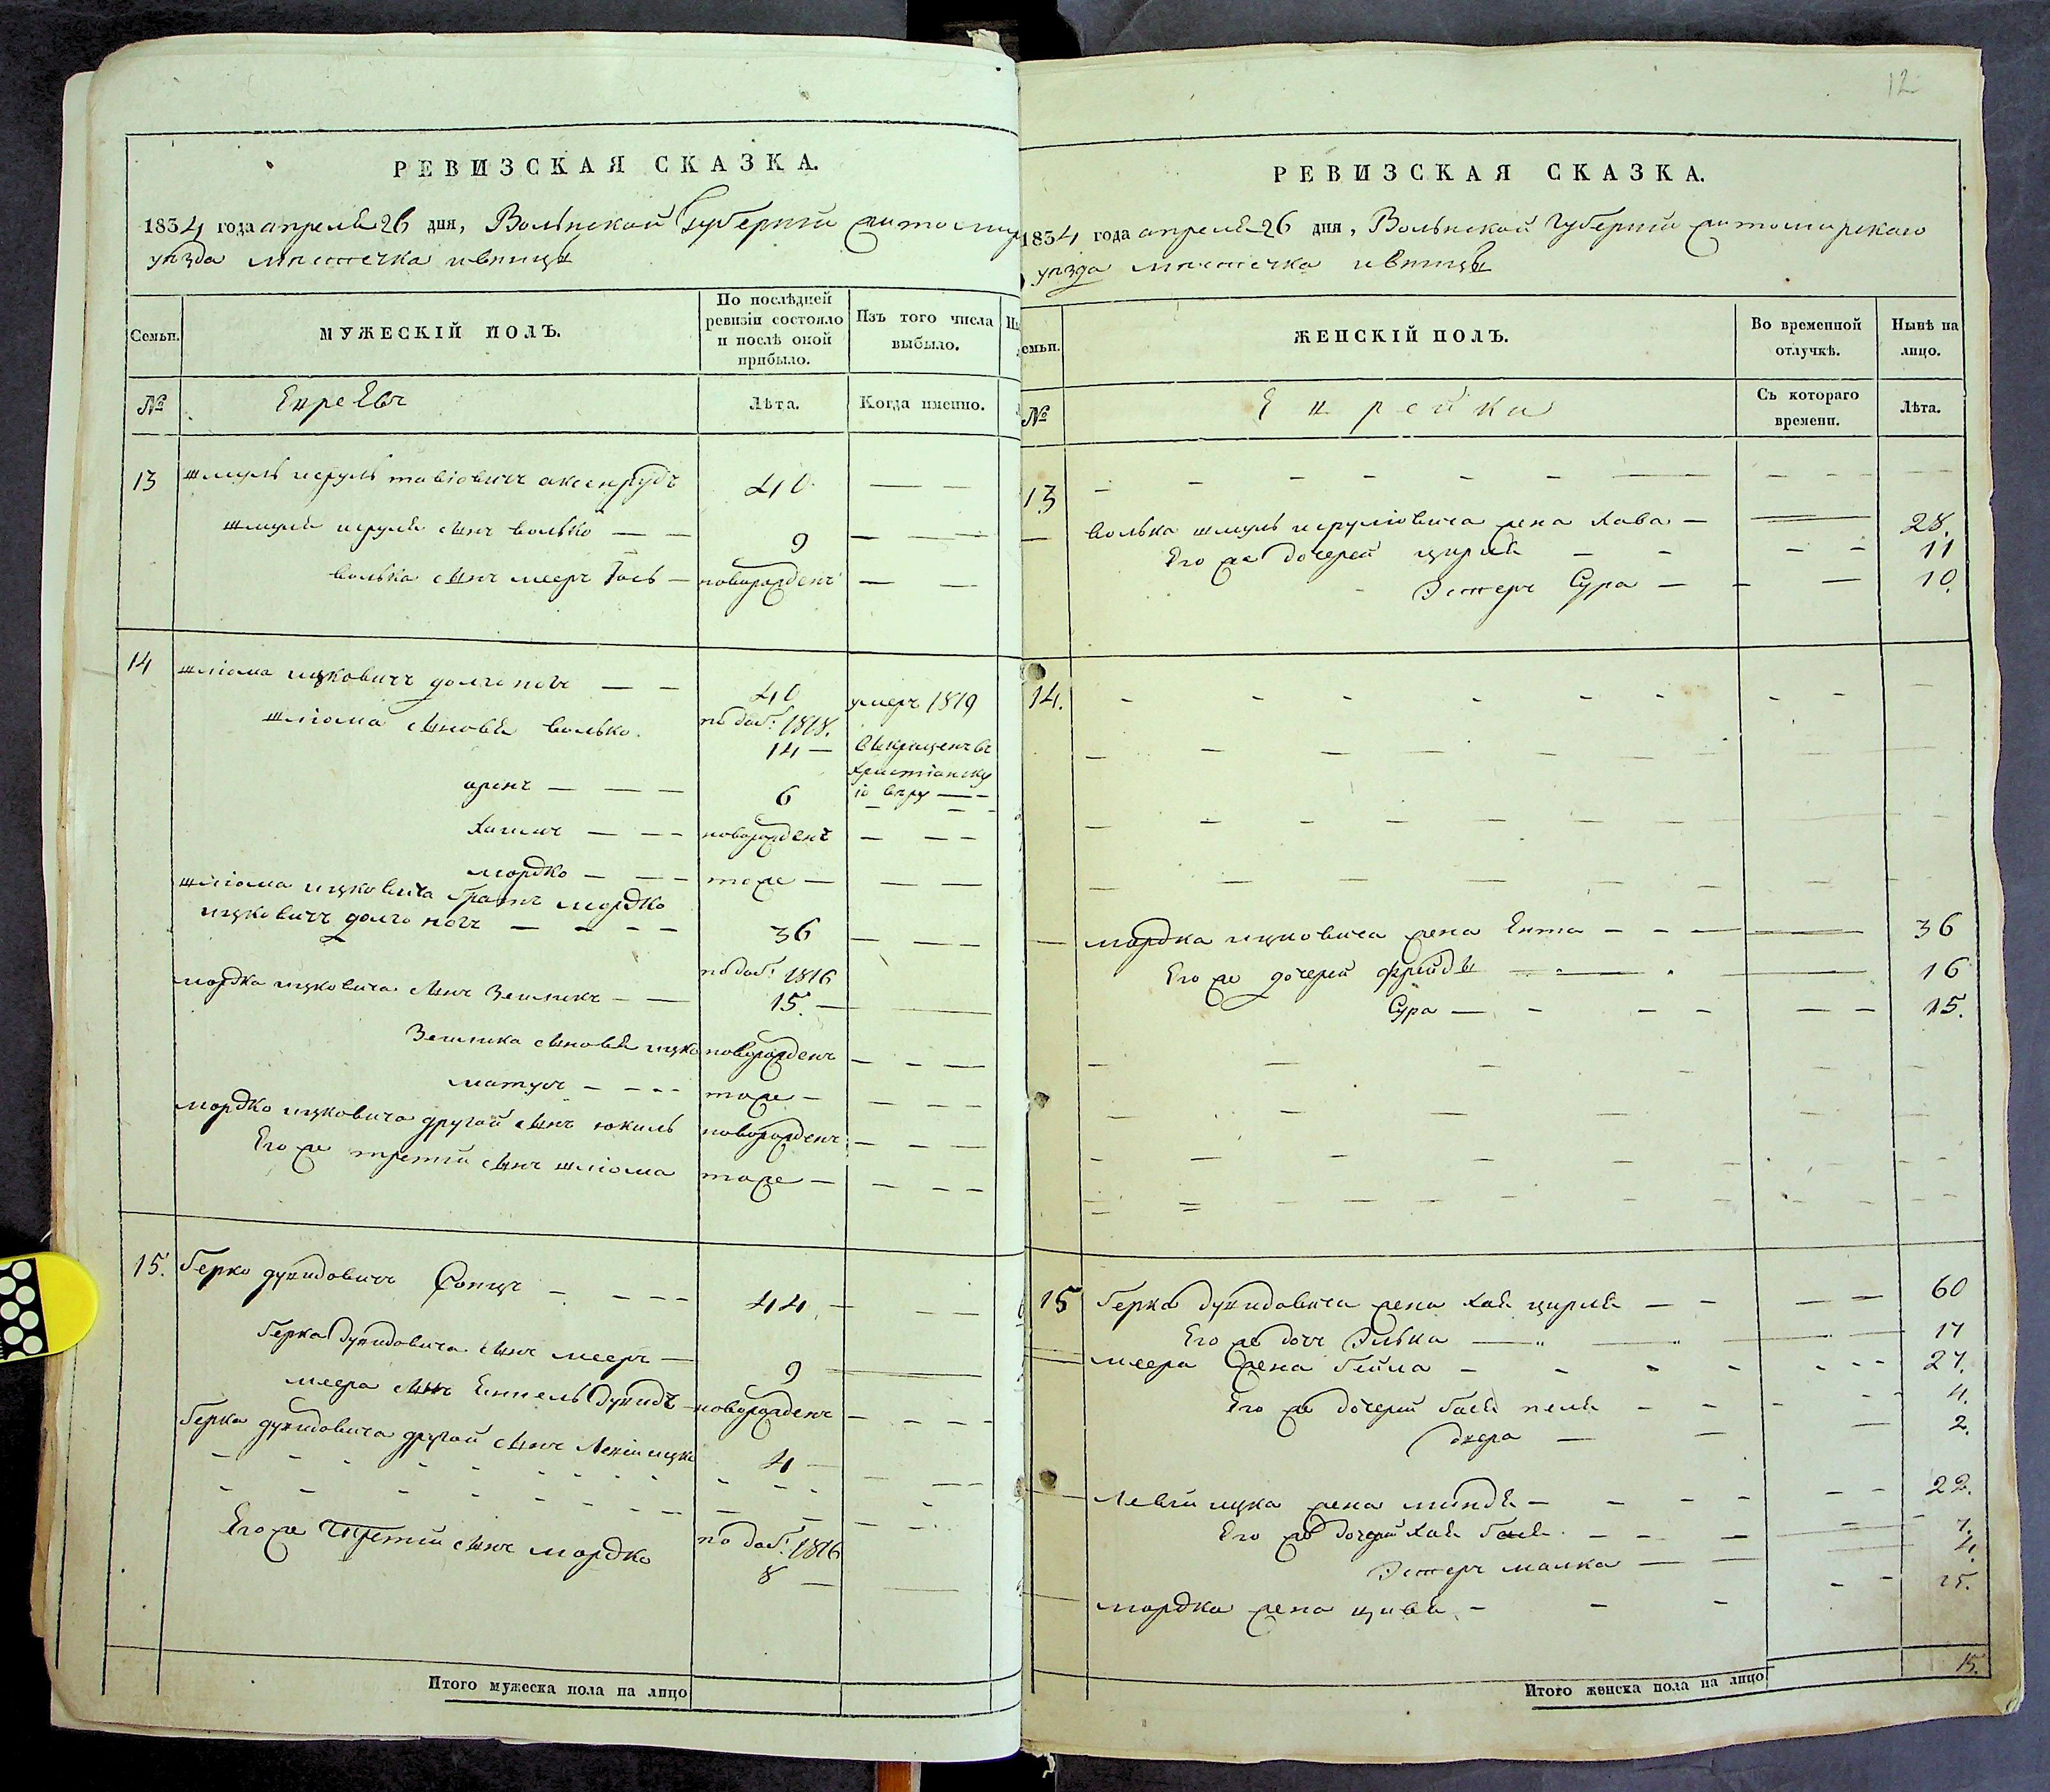 РЕВИЗСКАЯ СКАЗКА.
1834 года апреля 26 дня, Волынской Губерніи житомир
уѣзда мѣстечка ивницы
Семьи.
МУЖЕСКІЙ ПОЛЪ.
По послѣдней ревизіи состояло и послѣ оной прибыло.
Изъ того числа выбыло.
№
Евреевъ
Лѣта.
Когда именно.
13 шмуль сруль товіовичъ аксенрудъ 40
шмуля сруля сынъ волько 9
волька сынъ мееръ Іось новорожденъ
14 шліома ицковичъ долгоногъ 40 умеръ 1819
шліома сыновья волько. по доб: 1818.
14 выкрещенъ въ
христіанску
ю вѣру
аронъ 6
хаимъ новорожденъ
мордко тоже
шліома ицковича братъ мордко
ицковичъ долгоногъ 36
по доб: 1816
мордка ицковича сынъ Зейликъ 15.
Зейлика сыновья ицко новорожденъ
матусъ тоже
мордко ицковича другой сынъ юкиль новорожденъ
Его же третій сынъ шліома тоже
15. берко дувидовичъ 44
берка дувидовича сынъ мееръ 9
меера сынъ дувидъ новорожденъ
берка дувидовича другой сынъ ицко 4
Его же третій сынъ мордко по доб: 1816
8
Итого мужеска пола на лицо
12
РЕВИЗСКАЯ СКАЗКА.
1834 года апреля 26 дня, Волынской Губерніи житомирскаго
уѣзда мѣстечка ивницы
Семьи.
ЖЕНСКІЙ ПОЛЪ.
Во временной отлучкѣ.
Нынѣ на лицо.
№
Еврейки
Съ котораго времени.
Лѣта.
13
волька шмуль срулювича жена хава 28.
Его же дочерей цирля 11
Эстеръ Сура 10.
14.
мордка ицковича жена Ента 36
Его же дочерей фрейда 16
Сура 15.
15 берка дувидовича жена хая цирля 60
Его же дочь Элька 17
меера жена бейла 27.
Его же дочерей бася 4.
двера 2.
Левіи ицка жена миндя 22.
Его же дочерей хая бася 7.
Эстеръ малка 4.
мордка жена цивя 25.
15.
Итого женска пола на лицо